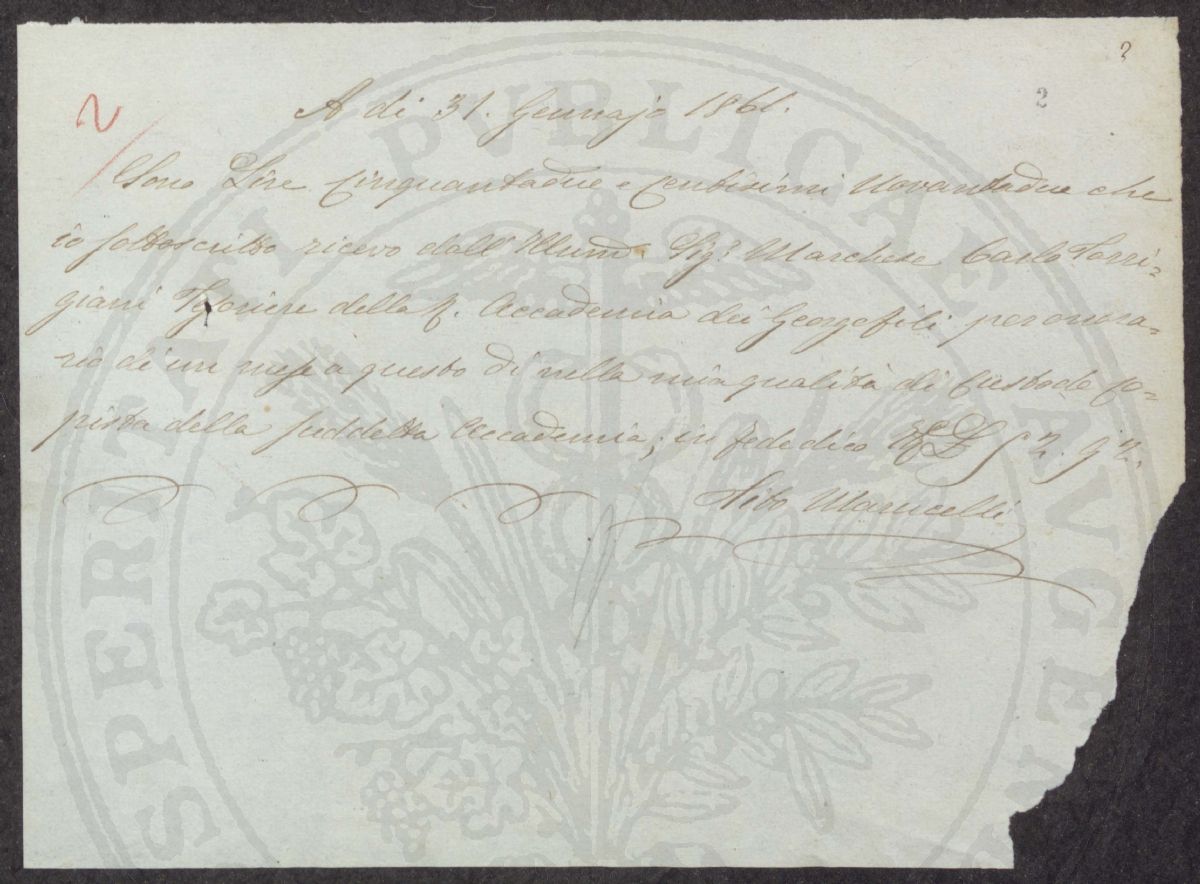 2
2
2
A dì 31. Gennajo 1861.
Sono Lire Cinquantadue e Centesimi Novantadue che
io sottoscritto ricevo dall' Illmo Sigr. Marchese Carlo Torri=
giani Tesoriere della R. Accademia dei Georgofili per onora=
rio di un mese a questo dì nella mia qualità di Custode Co=
pista della suddetta Accademia; in fede dico 52. 92.
PROSPERITATI PUBLICAE AUGEN